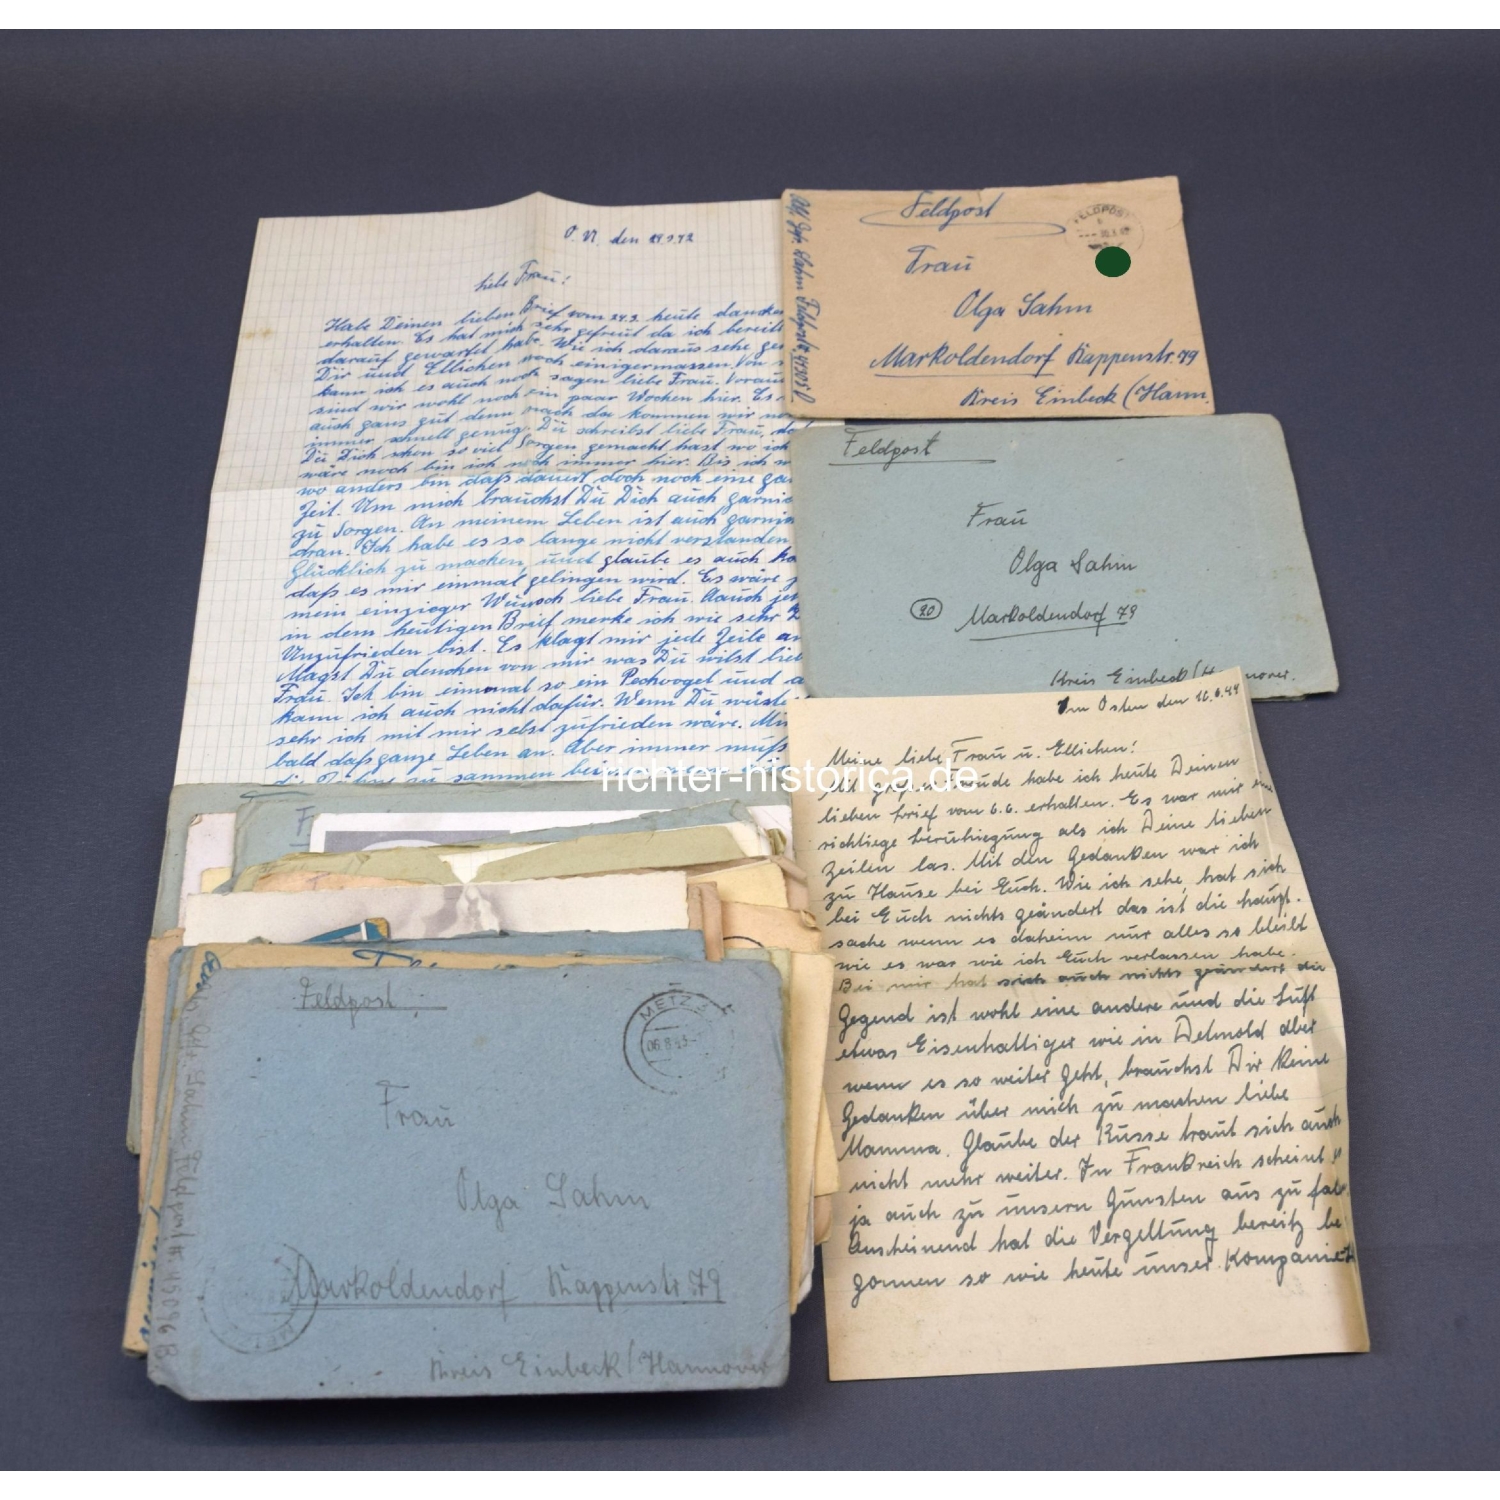 O. U. den 29.9.42
Liebe Frau!
Habe Deinen lieben Brief vom 24.9. heute danckend
erhalten. Es hat mich sehr gefreut da ich bereits
darauf gewartet habe. Wie ich daraus sehe
Dir und Ellichen noch einigermassen. Von
kann ich es auch noch sagen liebe Frau.
sind wir wohl noch ein paar Wochen hier. Es
auch ganz gut denn nach da kommen wir
immer schnell genug. Du schreibst liebe Frau,
Du Dich schon so viel Sorgen gemacht hast wo ich
wäre noch bin ich noch immer hier. Bis ich
wo anders bin daß dauert doch noch eine
Zeit. Um mich brauchst Du Dich auch
zu Sorgen. An meinem Leben ist auch
dran. Ich habe es so lange nicht verstanden
Glücklich zu machen, und glaube es auch
daß es mir einmal gelingen wird. Es wäre
mein einziger Wunsch liebe Frau. Aauch
in dem heutigen Brief merke ich wie sehr
Unzufrieden bist. Es klagt mir jede Zeile
Magst Du dencken von mir was Du wilst
Frau. Ich bin einmal so ein Pechvogel und
kann ich auch nicht dafür. Wenn Du wüste
sehr ich mit mir selbst zufrieden wäre.
bald daß ganze Leben an. Aber immer muß
Feldpost
FELDPOST
Frau
Olga Sahm
Markoldendorf Kappenstr. 79
Kreis Einbeck (Hann.
Feldpost
Frau
Olga Sahm
20 Markoldendorf 79
Kreis Einbeck
Im Osten den
Meine liebe Frau u. Ellichen!
Mit großer Freude habe ich heute Deinen
lieben Brief vom 6.6. erhalten. Es war mir
richtiege beruhiegung als ich Deine lieben
Zeilen las. Mit den Gedanken war ich
zu Hause bei Euch. Wie ich sehe, hat sich
bei Euch nichts geändert das ist die haupt-
sache wenn es daheim nur alles so bleibt
wie es war wie ich Euch verlassen habe.
Bei mir hat sich auch nichts geändert die
Gegend ist wohl eine andere und die Luft
etwas Eisenhaltiger wie in Detmold aber
wenn es so weiter geht, brauchst Dir keine
Gedanken über mich zu machen liebe
Mamma. Glaube der Russe traut sich auch
nicht mehr weiter. In Frankreich scheint es
ja auch zu unsern Gunsten aus zu
Anscheinend hat die Vergeltung bereitz be
gonnen so wie heute unser
richter-historica.de
Feldpost
METZ
Frau
Olga Sahm
Markoldendorf Kappenstr. 79
Kreis Einbeck/Hannover